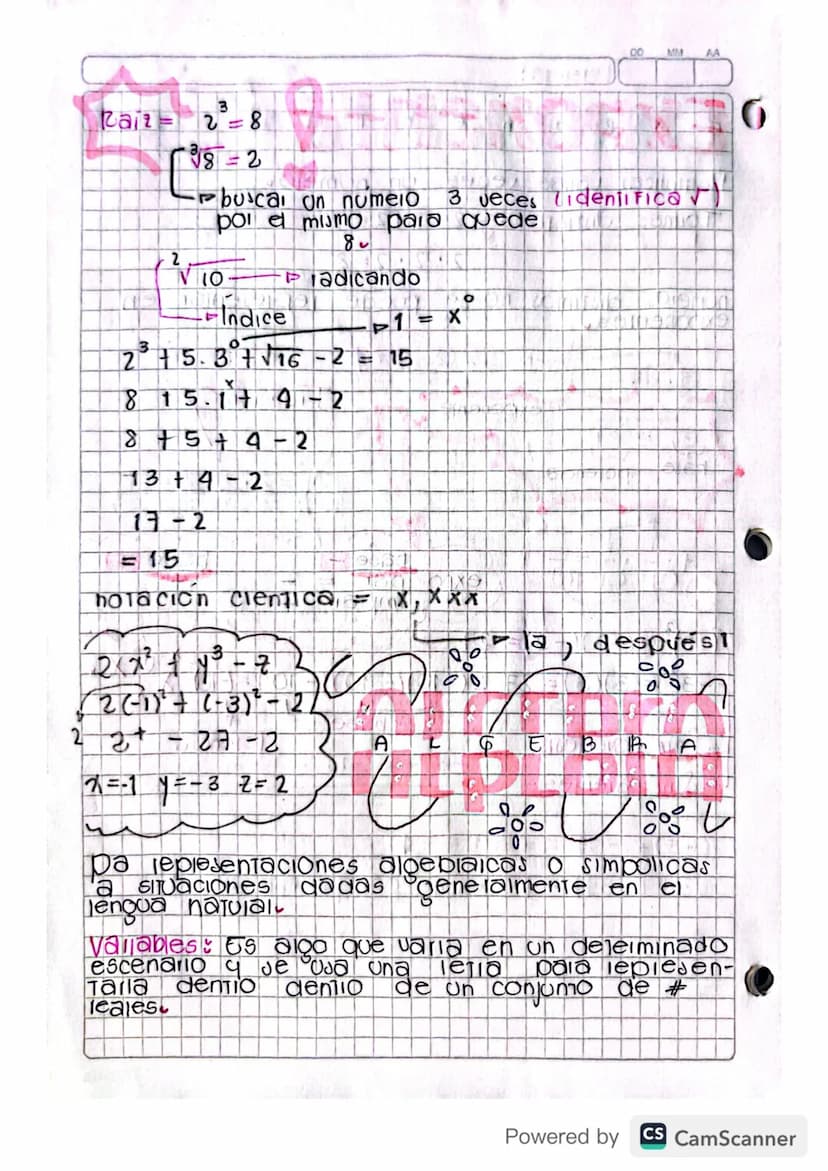 DD MM AA
Raiz = 2³ = 8
³√8 = 2
buscar un número 3 veces (identifica √)
por el mismo para quede
8
²√10 → radicando
Índice
1 = x⁰
2³ + 5 . 3⁰ + √16 - 2 = 15
8 + 5 . 1 + 4 - 2
8 + 5 + 4 - 2
13 + 4 - 2
17 - 2
= 15
notación cientica = x,xxx
la , después 1
2(x² + y³ - z
2(-1)² + (-3)² - 2
2 2+ - 27 - 2
x=-1 y=-3 z=2
ALGEBRA
A L G E B R A
Da representaciones algebraicas o simbolicas
a situaciones dadas generalmente en el
lengua natural.
Variables: Es algo que varia en un determinado
escenario y se usa una letra para represen-
tarla dentro dentro de un conjunto de #
reales.
Powered by CS CamScanner